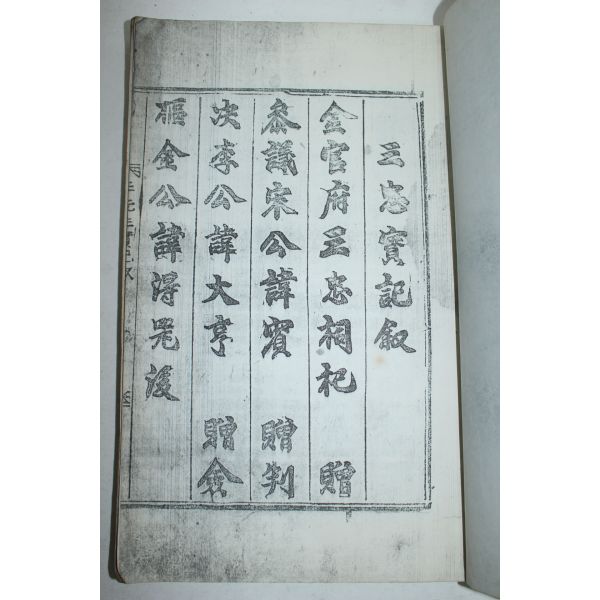 三忠實記叙
金官府三忠祠祀 贈
叅議宋公諱賓 贈判
决李公諱大亨 贈僉
樞金公諱得器後